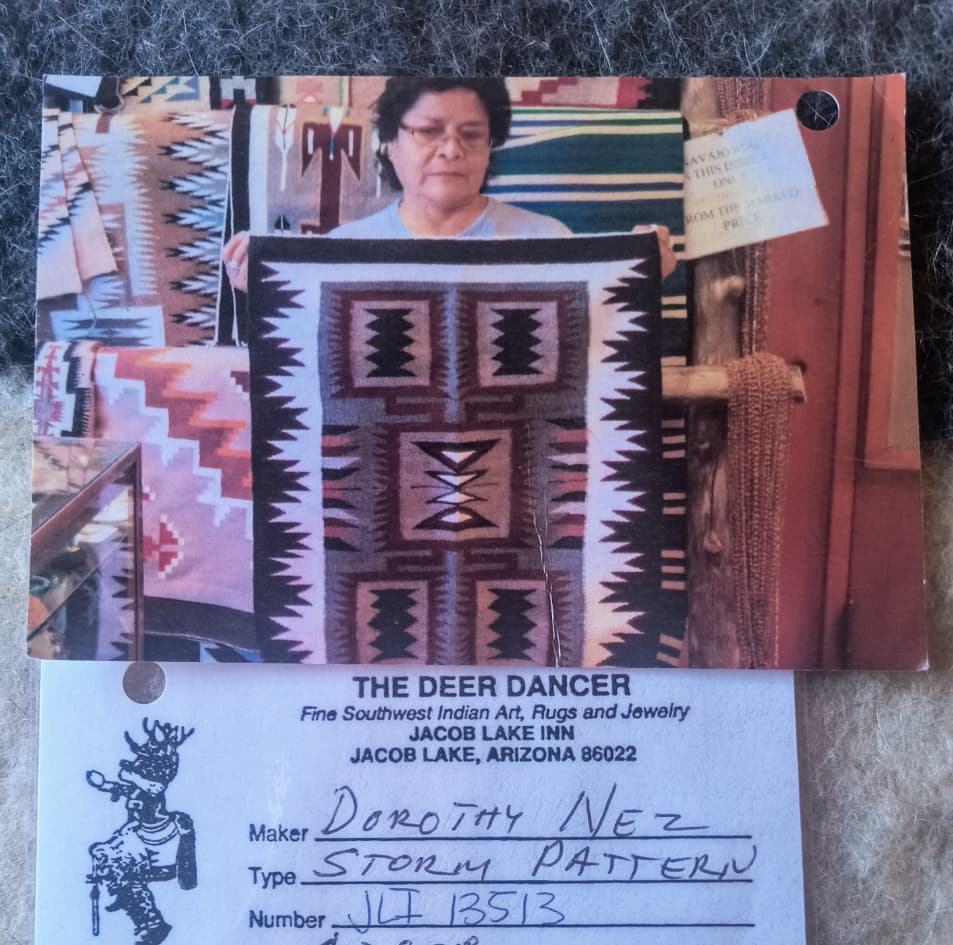 NAVAJO
THIS
ROM THE MARKED
PRICE
THE DEER DANCER
Fine Southwest Indian Art, Rugs and Jewelry
JACOB LAKE INN
JACOB LAKE, ARIZONA 86022
Maker DOROTHY NEZ
Type STORM PATTERN
Number JLI 13513